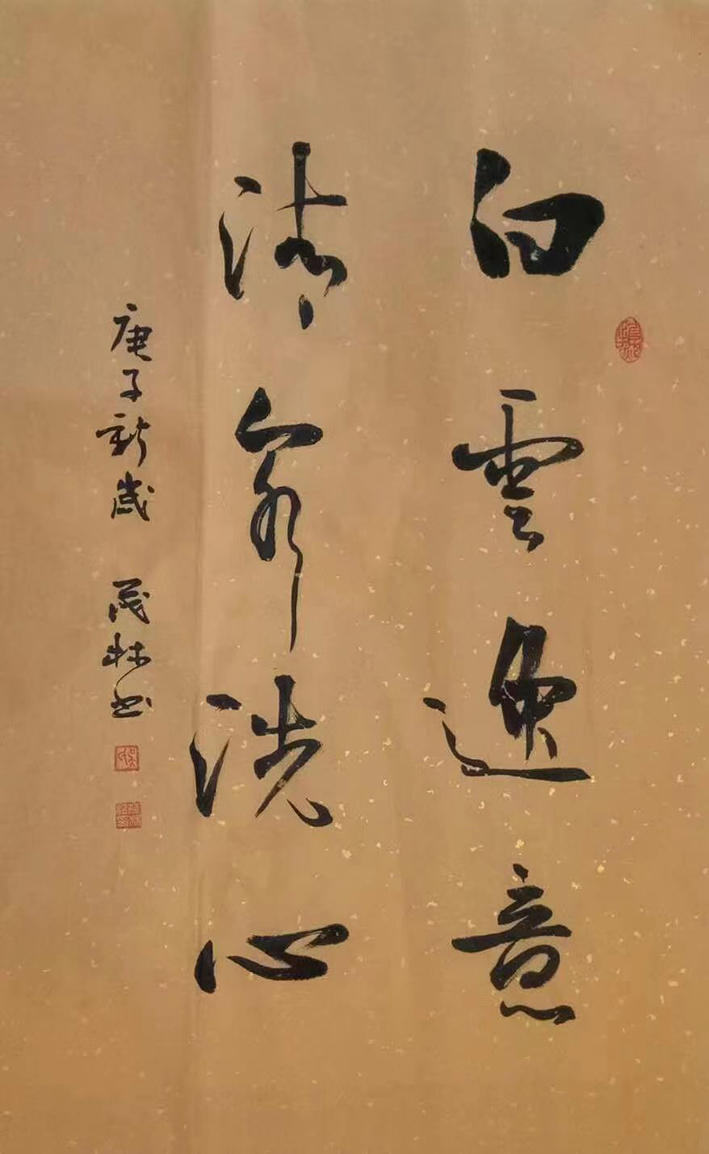 白雲逸意
清泉洗心
庚子新歲 茂林书